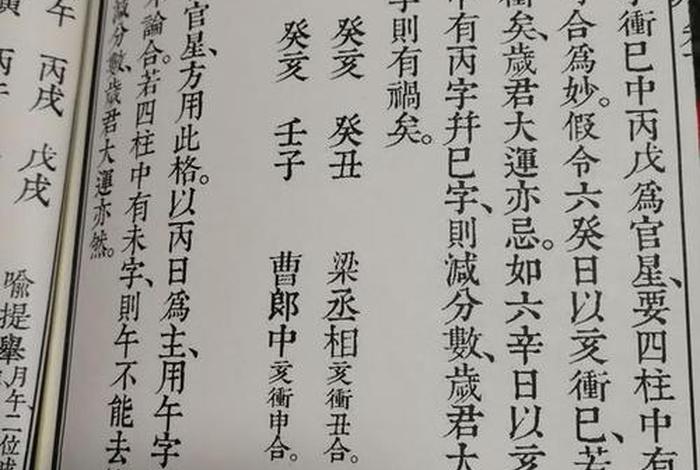 衝巳中丙戊爲官星、要四柱中有
字合爲妙。假令六癸日以亥衝巳、若
衝矣、歲君大運亦忌。如六辛日以亥
中有丙字幷巳字、則減分數、歲君大
字則有禍矣。
癸亥 癸丑 梁丞相亥衝丑合。
癸亥 壬子 曹郎中亥衝申合。
官星、方用此格。以丙日爲主、用午字
論合。若四柱中有未字、則午不能去
減分數、歲君大運亦然。
午 丙戌 戊戌
喻提舉月午二位
丙